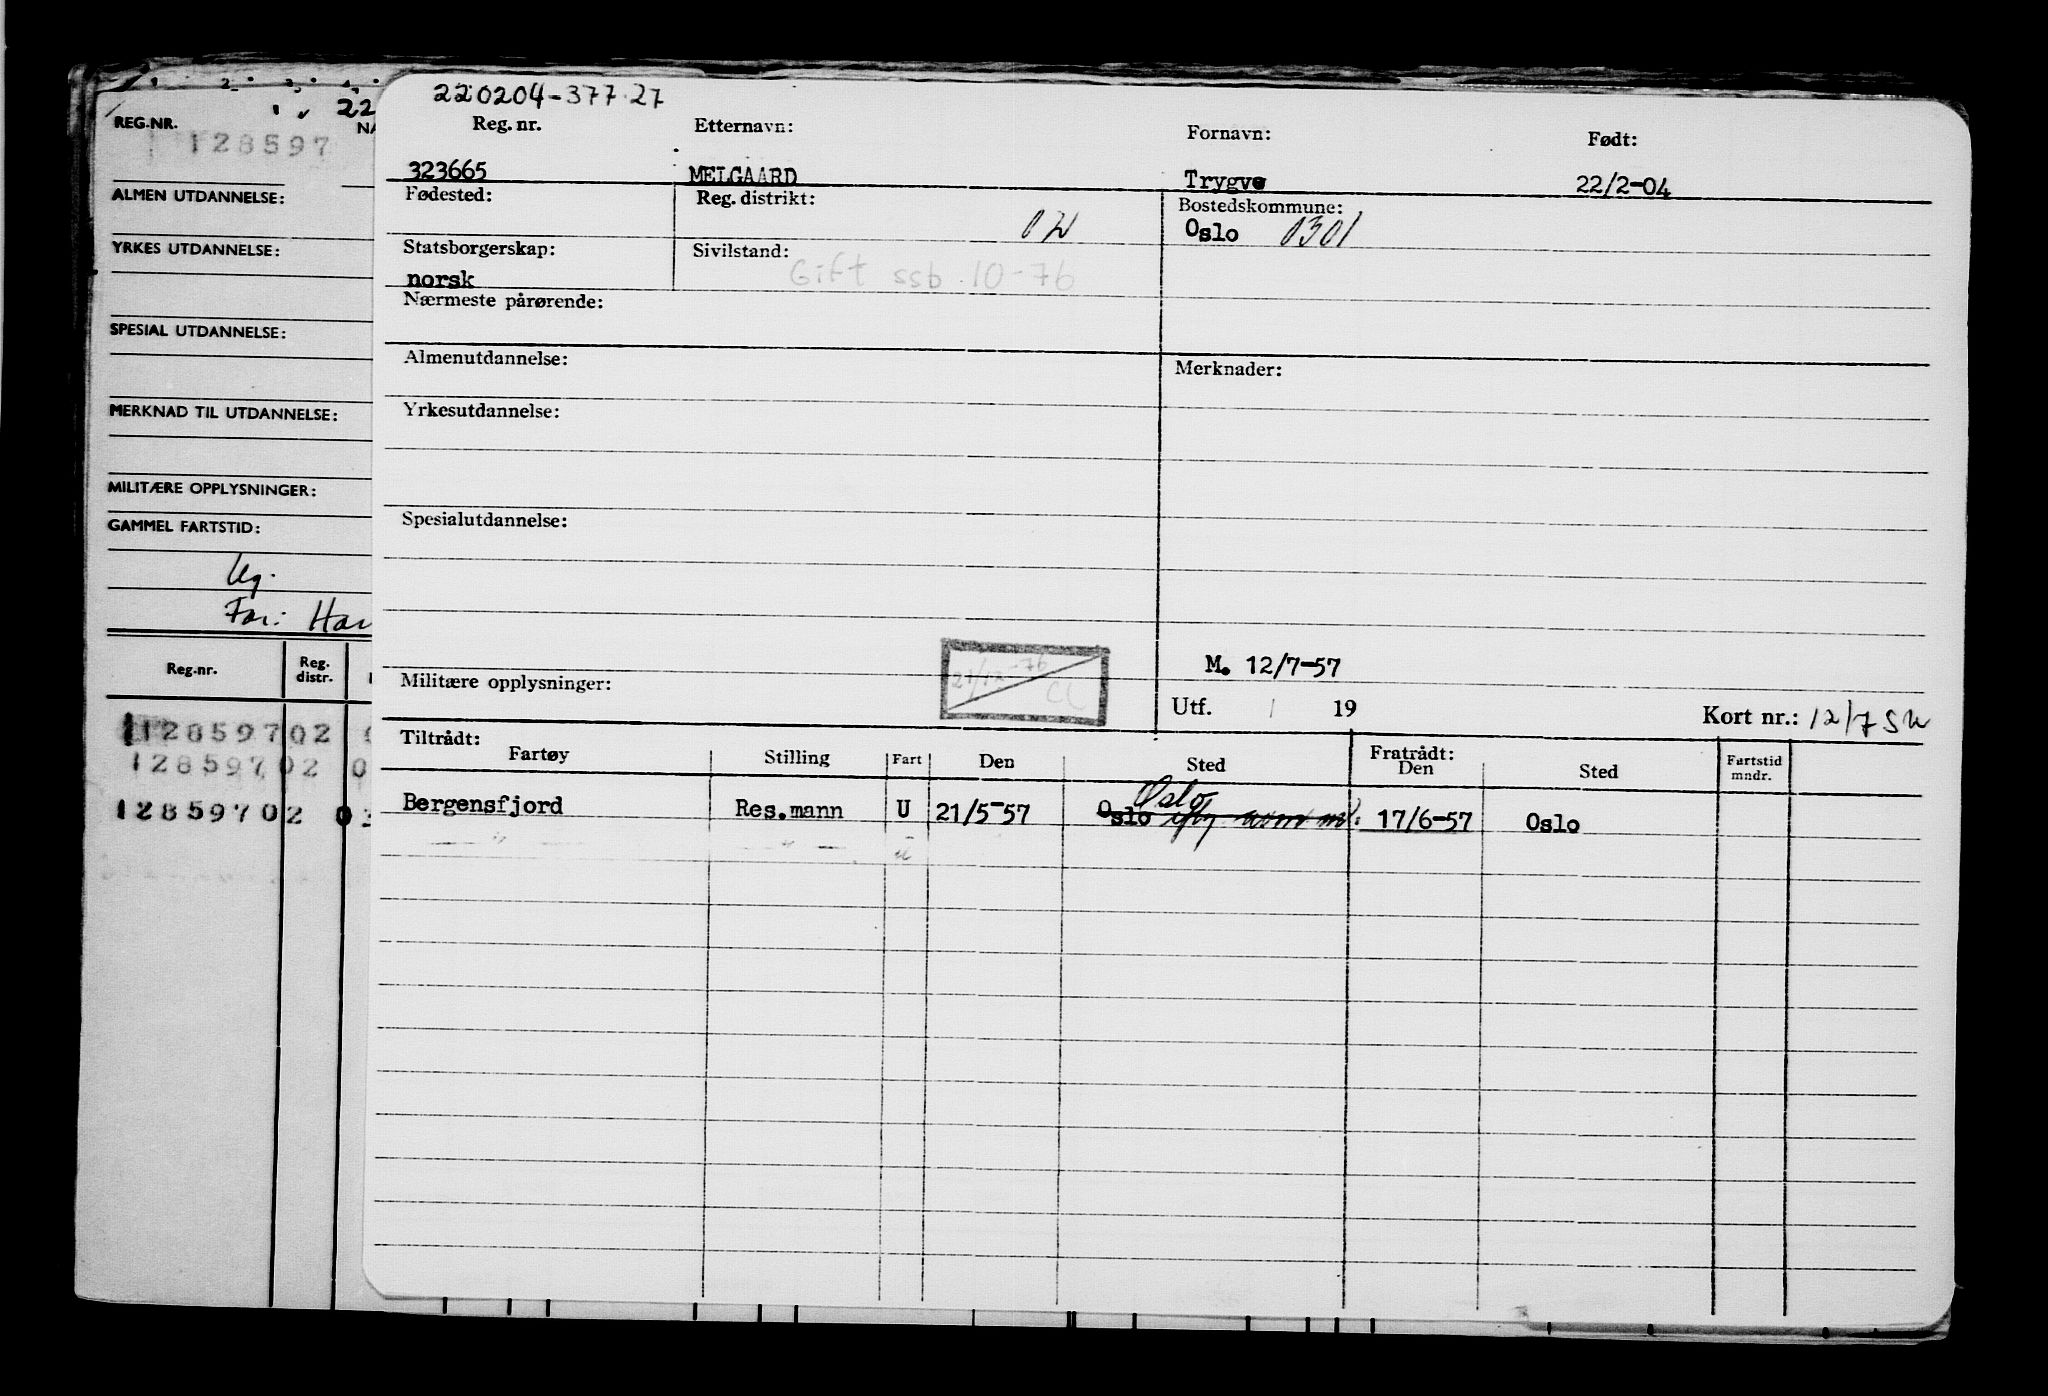 220204-377 27
Reg. nr. Etternavn: Fornavn: Født:
323665 MELGAARD Trygve 22/2-04
Fødested: Reg. distrikt: 02 Bostedskommune:
Oslo 0301
Statsborgerskap: Sivilstand:
norsk Gift ssb. 10-76
Nærmeste pårørende:
Almenutdannelse: Merknader:
Yrkesutdannelse:
Spesialutdannelse:
M. 12/7-57
Militære opplysninger: 21/12-76 CL
Utf. / 19 Kort nr.: 12/7 SW
Tiltrådt: Fratrådt:
Fartøy Stilling Fart Den Sted Den Sted Fartstid mndr.
Oslo
Bergensfjord Res.mann U 21/5-57 Oslo 17/6-57 Oslo
" " u
22
REG.NR. NA
128597
ALMEN UTDANNELSE:
YRKES UTDANNELSE:
SPESIAL UTDANNELSE:
MERKNAD TIL UTDANNELSE:
MILITÆRE OPPLYSNINGER:
GAMMEL FARTSTID:
Ug.
Far: Har
Reg.nr. Reg. distr.
128597 02 0
128597 02 0
128597 02 03